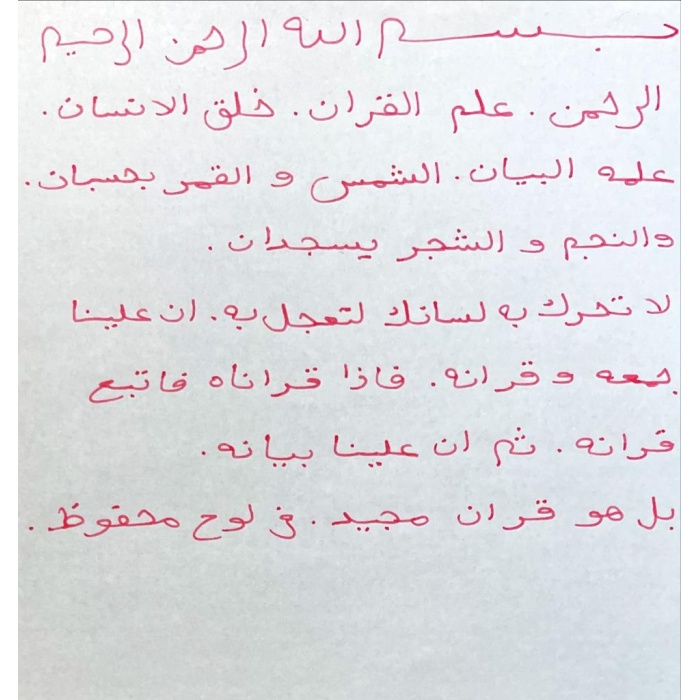 بسم الله الرحمن الرحيم
الرحمن. علم القران. خلق الانسان.
علمه البيان. الشمس و القمر بحسبان.
والنجم و الشجر يسجدان.
لا تحرك به لسانك لتعجل به. ان علينا
جمعه و قرانه. فاذا قراناه فاتبع
قرانه. ثم ان علينا بيانه.
بل هو قران مجيد. في لوح محفوظ.